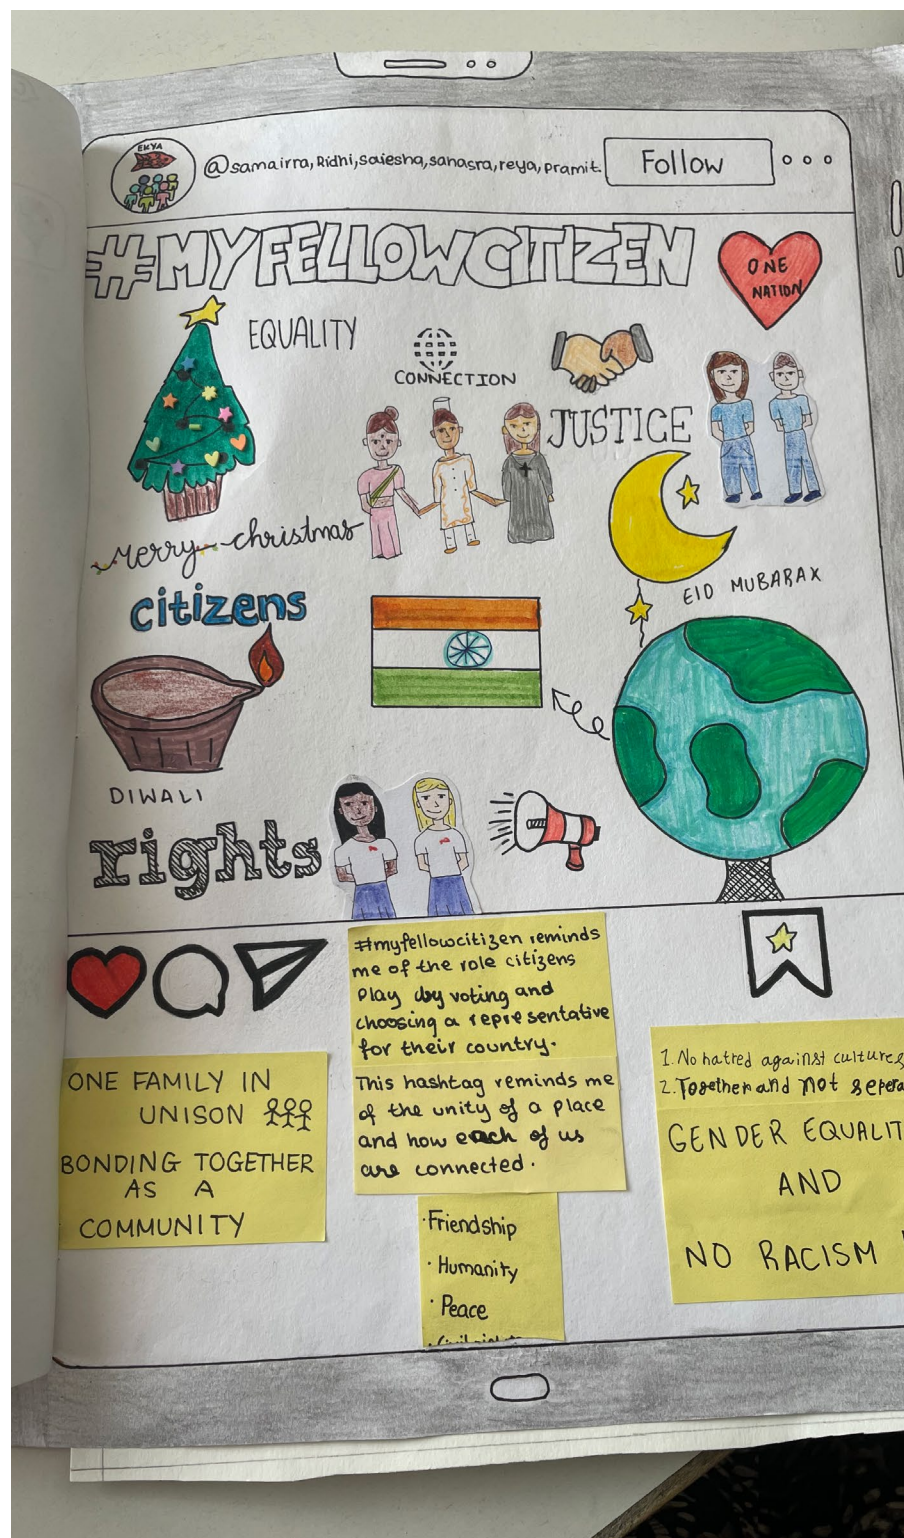 EKYA
@samairra, Ridhi, saiesha, sahasra, reya, Pramit.
Follow
#MYFELLOWCITIZEN
ONE
NATION
EQUALITY
CONNECTION
JUSTICE
Merry christmas
EID MUBARAK
citizens
DIWALI
rights
#myfellowcitizen reminds
me of the role citizens
Play by voting and
choosing a representative
for their country.
This hashtag reminds me
of the unity of a place
and how each of us
are connected.
· Friendship
· Humanity
· Peace
ONE FAMILY IN
UNISON
BONDING TOGETHER
AS A
COMMUNITY
1. No hatred against cultures
2. Together and not
GENDER
AND
NO RACISM